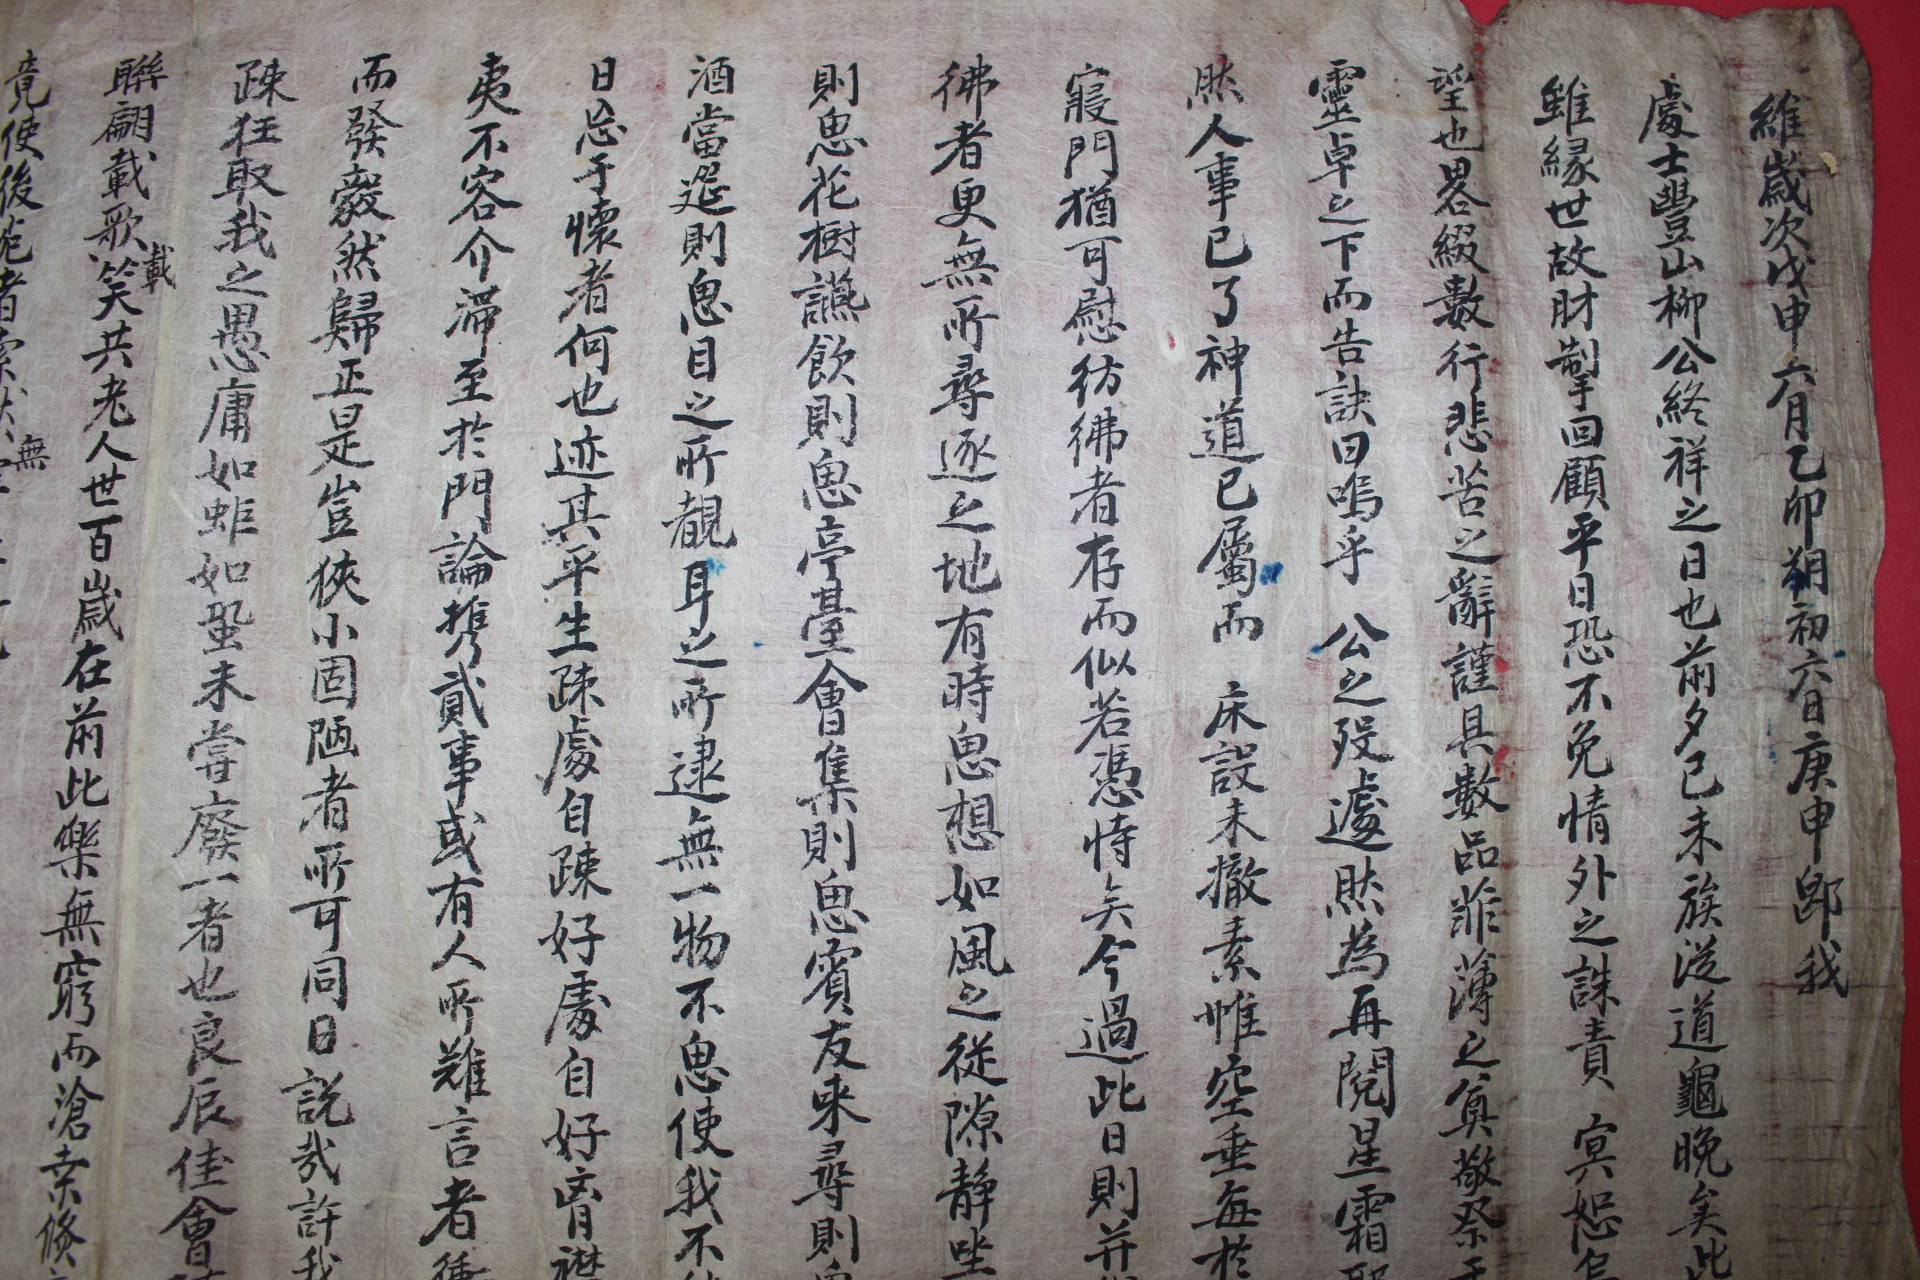 維歲次戊申六月乙卯朔初六日庚申卽我
處士豐山柳公終祥之日也前夕己未族從道龜晚矣此
雖緣世故財掣回顧平日恐不免情外之誅責 冥恕
望也畧綴數行悲苦之辭謹具數品菲薄之奠敬祭于
靈卓之下而告訣曰嗚乎 公之歿遽然為再閱星霜
然人事已了神道已屬而 床設未撤素帷空垂每於
寢門猶可慰彷彿者存而似若憑恃矣今過此日則并
彿者更無所尋逐之地有時思想如風之從隙靜坐
則思花樹讌飮則思亭臺會集則思賓友來尋則
酒當筵則思目之所覩耳之所逮無一物不思使我不
日忘于懷者何也迹其平生踈處自踈好處自好胷襟
夷不容介滯至於門論携貳事或有人所難言者
而發毅然歸正是豈狹小固陋者所可同日說哉許我
踈狂取我之愚庸如蚷如蛩未嘗廢一者也良辰佳會
聯翩載歌載笑共老人世百歲在前此樂無窮而滄桑倐
竟使後 者 無